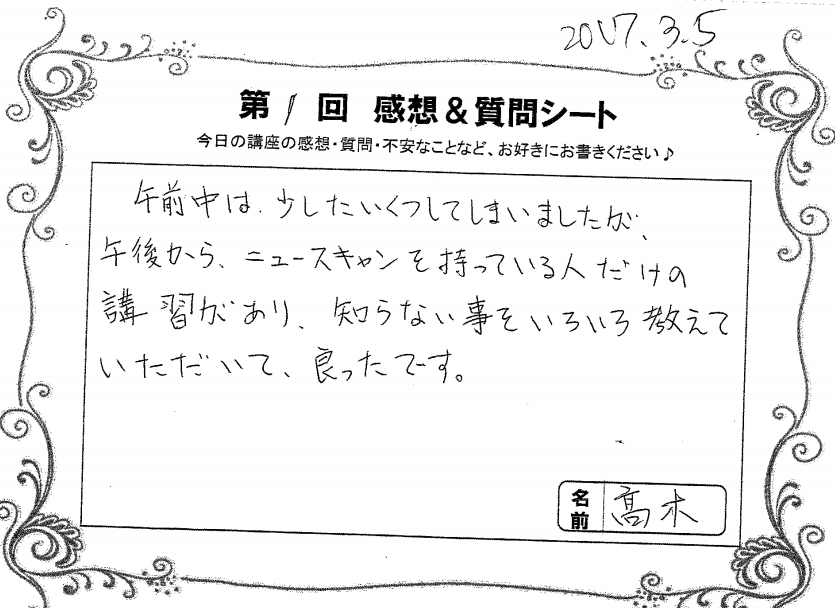 2017.3.5
第1回 感想&質問シート
今日の講座の感想・質問・不安なことなど、お好きにお書きください♪
午前中は、少したいくつしてしまいましたが、
午後から、ニュースキャンを持っている人だけの
講習があり、知らない事をいろいろ教えて
いただいて、良ったです。
名前 髙木